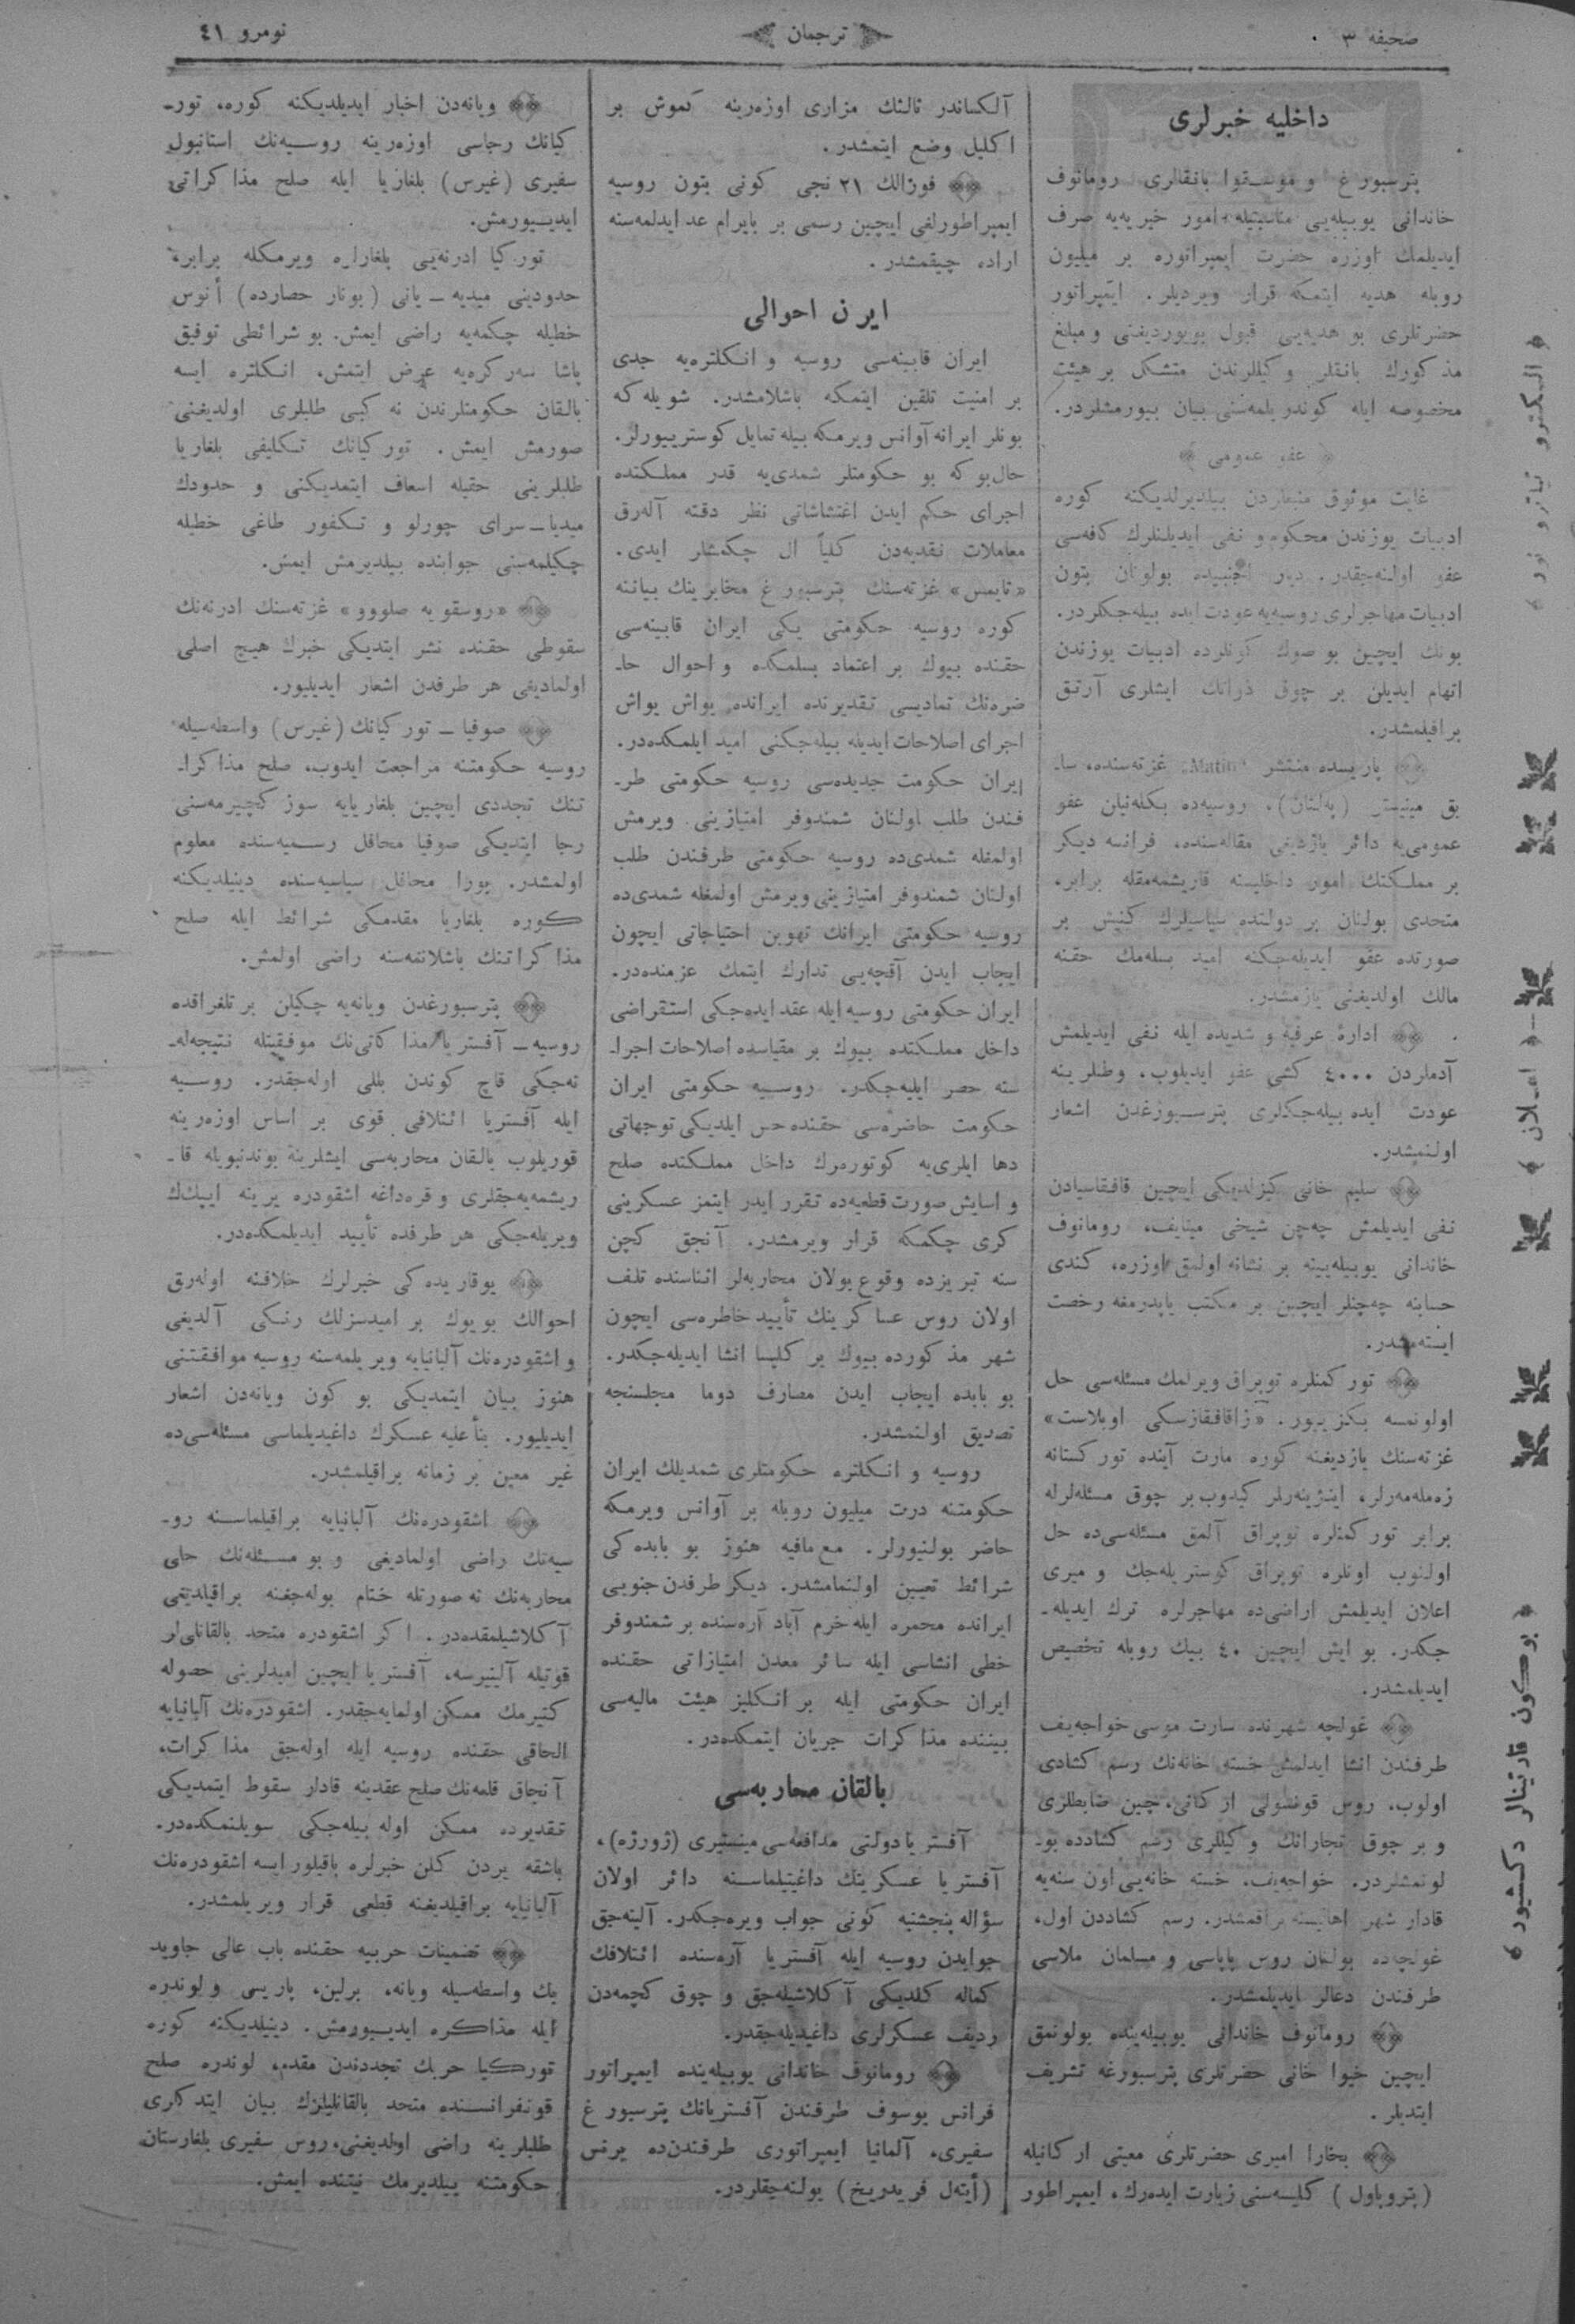 صحیفه ۳
ترجمان
نومرو ٤١
داخلیه خبرلری
پترسبورغ و موسقوا بانقالری رومانوف
خاندانی یوبیله‌یی مناسبتیله امور خیریه‌یه صرف
ایدیلمك اوزره حضرت ایمپراتوره بر میلیون
روبله هدیه ایتمكه قرار ویردیلر. ایمپراتور
حضرتلری بو هدیه‌یی قبول بویوردیغنی و مبلغ
مذكورك بانقلر وكیللرندن متشكل بر هیئت
مخصوصه ایله كوندریلمه‌سنی بیان بیورمشلردر.
﴿ عفو عمومی ﴾
غایت موثوق منبعلردن بیلدیرلدیكنه كوره
ادبیات یوزندن محكوم و نفی ایدیلنلرك كافه‌سی
عفو اولنه‌جقدر. دیار اجنبیده بولونان بتون
ادبیات مهاجرلری روسیه‌یه عودت ایده بیله‌جكلردر.
بونك ایچین بو صوك كونلرده ادبیات یوزندن
اتهام ایدیلن بر چوق ذواتك ایشلری آرتق
براقیلمشدر.
پاریسده منتشر „Matin“ غزته‌سنده، سا-
بق مینیستر (په‌لتان)، روسیه‌ده بكله‌نیلن عفو
عمومی‌یه دائر یازدیغی مقاله‌سنده، فرانسه دیكر
بر مملكتك امور داخلیسنه قاریشمه‌مقله برابر،
متحدی بولنان بر دولتده سیاسیلرك كنیش بر
صورتده عفو ایدیله‌جكنه امید بسله‌مك حقنه
مالك اولدیغنی یازمشدر.
ادارۀ عرفیه و شدیده ایله نفی ایدیلمش
آدملردن ٤٠٠٠ كشی عفو ایدیلوب، وطنلرینه
عودت ایده بیله‌جكلری پترسبورغدن اشعار
اولنمشدر.
سلیم خانی كیزلدیكی ایچین قافقاسیادن
نفی ایدیلمش چه‌چن شیخی میتایف، رومانوف
خاندانی یوبیله‌یینه بر نشانه اولمق اوزره، كندی
حسابنه چه‌چنلر ایچین بر مكتب یاپدرمغه رخصت
ایسته‌مشدر.
توركمنلره توپراق ویرلمك مسئله‌سی حل
اولونمسه بكزییور. «زاقافقازسكی اوبلاست»
غزته‌سنك یازدیغنه كوره مارت آینده توركستانه
زه‌مله‌مه‌رلر، اینژینه‌رلر كیدوب بر چوق مسئله‌لرله
برابر توركمنلره توپراق آلمق مسئله‌سی‌ده حل
اولنوب اونلره توپراق كوستریله‌جك و میری
اعلان ایدیلمش اراضی‌ده مهاجرلره ترك ایدیله-
جكدر. بو ایش ایچین ٤٠ بیك روبله تخصیص
ایدیلمشدر.
غولجه شهرنده سارت موسی خواجه‌یف
طرفندن انشا ایدلمش خسته خانه‌نك رسم كشادی
اولوب، روس قونسولی اركانی، چین ضابطلری
و بر چوق تجارانك وكیللری رسم كشادده بو-
لونمشلردر. خواجه‌یف، خسته خانه‌یی اون سنه‌یه
قادار شهر اهالیسنه براقمشدر. رسم كشاددن اول،
غولجه‌ده بولنان روس پاپاسی و مسلمان ملاسی
طرفندن دعالر ایدیلمشدر.
رومانوف خاندانی یوبیله‌ینده بولونمق
ایچین خیوا خانی حضرتلری پترسبورغه تشریف
ایتدیلر.
بخارا امیری حضرتلری معیتی اركانیله
(پتروپاول) كلیسه‌سنی زیارت ایده‌رك، ایمپراطور
آلكساندر ثالثك مزاری اوزه‌رینه كموش بر
اكلیل وضع ایتمشدر.
فورالك ٢١ نجی كونی بتون روسیه
ایمپراطورلغی ایچین رسمی بر بایرام عد ایدلمه‌سنه
اراده چیقمشدر.
ایرن احوالی
ایران قابینه‌سی روسیه و انكلتره‌یه جدی
بر امنیت تلقین ایتمكه باشلامشدر. شویله كه
بونلر ایرانه آوانس ویرمكه بیله تمایل كوسترییورلر.
حال‌بوكه بو حكومتلر شمدی‌یه قدر مملكتده
اجرای حكم ایدن اغتشاشاتی نظر دقته آله‌رق
معاملات نقدیه‌دن كلیاً ال چكمشلر ایدی.
«تایمس» غزته‌سنك پترسبورغ مخابرینك بیاننه
كوره روسیه حكومتی یكی ایران قابینه‌سی
حقنده بیوك بر اعتماد بسلمكده و احوال حا-
ضره‌نك تمادیسی تقدیرنده ایرانده یواش یواش
اجرای اصلاحات ایدیله بیله‌جكنی امید ایلمكده‌در.
ایران حكومت جدیده‌سی روسیه حكومتی طر-
فندن طلب اولنان شمندوفر امتیازینی ویرمش
اولمغله شمدی‌ده روسیه حكومتی طرفندن طلب
اولنان شمندوفر امتیازینی ویرمش اولمغله شمدی‌ده
روسیه حكومتی ایرانك تهوین احتیاجاتی ایچون
ایجاب ایدن آقچه‌یی تدارك ایتمك عزمنده‌در.
ایران حكومتی روسیه ایله عقد ایده‌جكی استقراضی
داخل مملكتده بیوك بر مقیاسده اصلاحات اجرا-
سنه حصر ایلیه‌جكدر. روسیه حكومتی ایران
حكومت حاضره‌سی حقنده حس ایلدیكی توجهاتی
دها ایلری‌یه كوتوره‌رك داخل مملكتده صلح
و اسایش صورت قطعیه‌ده تقرر ایدر ایتمز عسكرینی
كری چكمكه قرار ویرمشدر. آنجق كچن
سنه تبریزده وقوع بولان محاربه‌لر اثناسنده تلف
اولان روس عساكرینك تأیید خاطره‌سی ایچون
شهر مذكورده بیوك بر كلیسا انشا ایدیله‌جكدر.
بو بابده ایجاب ایدن مصارف دوما مجلسنجه
تصدیق اولنمشدر.
روسیه و انكلتره حكومتلری شمدیلك ایران
حكومتنه درت میلیون روبله بر آوانس ویرمكه
حاضر بولنیورلر. مع‌مافیه هنوز بو بابده‌كی
شرائط تعیین اولنمامشدر. دیكر طرفدن جنوبی
ایرانده محمره ایله خرم آباد آره‌سنده بر شمندوفر
خطی انشاسی ایله سائر معدن امتیازاتی حقنده
ایران حكومتی ایله بر انكلیز هیئت مالیه‌سی
بیننده مذاكرات جریان ایتمكده‌در.
بالقان محاربه‌سی
آفستریا دولتی مدافعه‌سی مینستیری (ژورژه)،
آفستریا عسكرینك داغیتیلماسنه دائر اولان
سؤاله پنجشنبه كونی جواب ویره‌جكدر. آلینه‌جق
جوابدن روسیه ایله آفستریا آره‌سنده ائتلافك
كماله كلدیكی آكلاشیله‌جق و چوق كچمه‌دن
ردیف عسكرلری داغیدیله‌جقدر.
رومانوف خاندانی یوبیله‌ینده ایمپراتور
فرانس یوسوف طرفندن آفستریانك پترسبورغ
سفیری، آلمانیا ایمپراتوری طرفندن‌ده پرنس
(أیته‌ل فریدریخ) بولنه‌جقلردر.
ویانه‌دن اخبار ایدیلدیكنه كوره، تور-
كیانك رجاسی اوزه‌رینه روسیه‌نك استانبول
سفیری (غیرس) بلغاریا ایله صلح مذاكراتی
ایدییورمش.
توركیا ادرنه‌یی بلغارلره ویرمكله برابر،
حدودینی میدیه – یانی (بونار حصارده) أنوس
خطیله چكمه‌یه راضی ایمش. بو شرائطی توفیق
پاشا سه‌ركره‌یه عرض ایتمش، انكلتره ایسه
بالقان حكومتلرندن نه كبی طلبلری اولدیغنی
صورمش ایمش. توركیانك تكلیفی بلغاریا
طلبلرینی حقیله اسعاف ایتمدیكنی و حدودك
میدیا – سرای چورلو و تكفور طاغی خطیله
چكیلمه‌سنی جوابنده بیلدیرمش ایمش.
«روسقویه صلووو» غزته‌سنك ادرنه‌نك
سقوطی حقنده نشر ایتدیكی خبرك هیچ اصلی
اولمادیغی هر طرفدن اشعار ایدیلیور.
صوفیا – توركیانك (غیرس) واسطه‌سیله
روسیه حكومتنه مراجعت ایدوب، صلح مذاكرا-
تنك تجددی ایچین بلغاریایه سوز كچیرمه‌سنی
رجا ایتدیكی صوفیا محافل رسمیه‌سنده معلوم
اولمشدر. بورا محافل سیاسیه‌سنده دینیلدیكنه
كوره بلغاریا مقدمكی شرائط ایله صلح
مذاكراتنك باشلانمه‌سنه راضی اولمش.
پترسبورغدن ویانه‌یه چكیلن بر تلغرافده
روسیه – آفستریا مذاكاتی‌نك موفقیتله نتیجه‌له-
نه‌جكی قاچ كوندن بللی اوله‌جقدر. روسیه
ایله آفستریا ائتلافی قوی بر اساس اوزه‌رینه
قوریلوب بالقان محاربه‌سی ایشلرینه بوندنبویله قا-
ریشمه‌یه‌جقلری و قره‌داغه اشقودره یرینه ایپك‌ك
ویریله‌جكی هر طرفده تأیید ایدیلمكده‌در.
یوقاریده‌كی خبرلرك خلافنه اوله‌رق
احوالك بویوك بر امیدسزلك رنكی آلدیغی
و اشقودره‌نك آلبانیایه ویریلمه‌سنه روسیه موافقتنی
هنوز بیان ایتمدیكی بو كون ویانه‌دن اشعار
ایدیلیور. بنأعلیه عسكرك داغیدیلماسی مسئله‌سی‌ده
غیر معین بر زمانه براقیلمشدر.
اشقودره‌نك آلبانیایه براقیلماسنه رو-
سیه‌نك راضی اولمادیغی و بو مسئله‌نك حلی
محاربه‌نك نه صورتله ختام بوله‌جغنه براقیلدیغی
آكلاشیلمقده‌در. اكر اشقودره متحد بالقانلی‌لر
قوتیله آلینیرسه، آفستریا ایچین امیدلرینی حصوله
كتیرمك ممكن اولمایه‌جقدر. اشقودره‌نك آلبانیایه
الحاقی حقنده روسیه ایله اوله‌جق مذاكرات،
آنجاق قلعه‌نك صلح عقدینه قادار سقوط ایتمدیكی
تقدیرده ممكن اوله بیله‌جكی سویلنمكده‌در.
باشقه یردن كلن خبرلره باقیلور ایسه اشقودره‌نك
آلبانیایه براقیلدیغنه قطعی قرار ویریلمشدر.
تضمینات حربیه حقنده باب عالی جاوید
بك واسطه‌سیله ویانه، برلین، پاریس و لوندره
ایله مذاكره ایدییورمش. دینیلدیكنه كوره
توركیا حربك تجددندن مقدم، لوندره صلح
قونفرانسنده متحد بالقانلیلرك بیان ایتدكلری
طلبلرینه راضی اولدیغنی، روس سفیری بلغارستان
حكومتنه بیلدیرمك نیتنده ایمش.
﴿ الیكترو تیاترو نور ﴾
﴿ اعلان ﴾
﴿ بوكون قارتینالر دكشیور ﴾